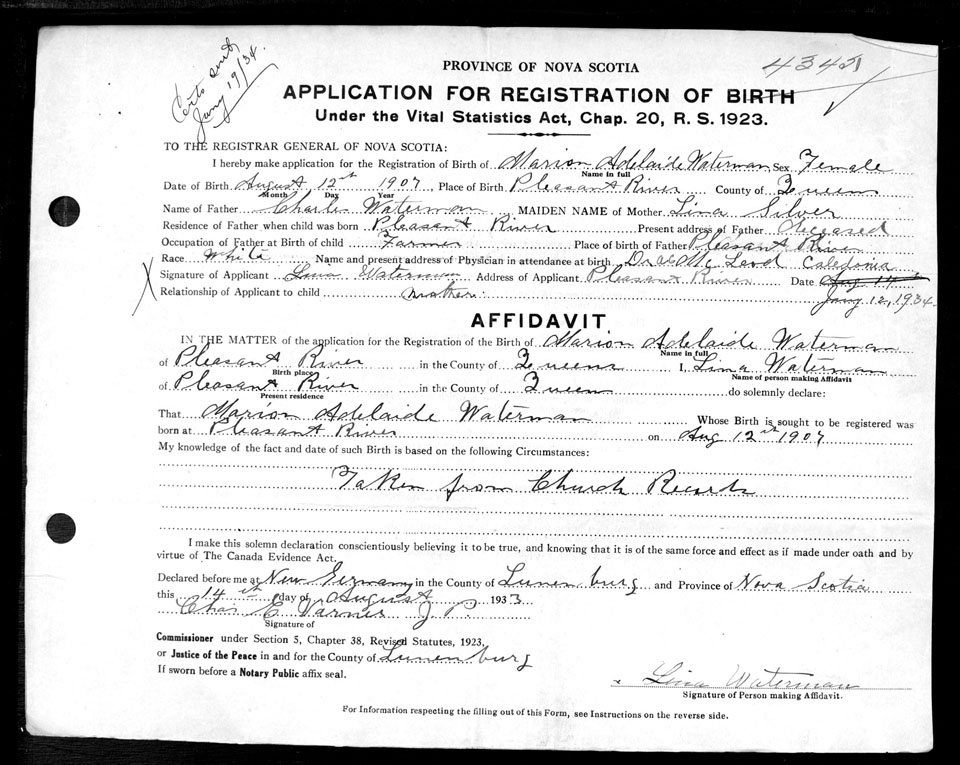 Certs sent
Jany 19/34.
PROVINCE OF NOVA SCOTIA
APPLICATION FOR REGISTRATION OF BIRTH
Under the Vital Statistics Act, Chap. 20, R. S. 1923.
TO THE REGISTRAR GENERAL OF NOVA SCOTIA:
I hereby make application for the Registration of Birth of Marion Adelaide Waterman Sex Female
Name in full
Date of Birth August 12th 1907, Place of Birth Pleasant River County of Queens
Month Day Year
Name of Father Charles Waterman MAIDEN NAME of Mother Lina Silver
Residence of Father when child was born Pleasant River Present address of Father deceased
Occupation of Father at Birth of child Farmer Place of birth of Father Pleasant River
Race White Name and present address of Physician in attendance at birth Dr Mc Leod Caledonia
Signature of Applicant Lina Waterman Address of Applicant Pleasant River Date Aug 14
Relationship of Applicant to child mother. Jany 12, 1934.
AFFIDAVIT
IN THE MATTER of the application for the Registration of the Birth of Marion Adelaide Waterman
Name in full
of Pleasant River in the County of Queens I, Lina Waterman
Birth place Name of person making Affidavit
of Pleasant River in the County of Queens do solemnly declare:
Present residence
That Marion Adelaide Waterman Whose Birth is sought to be registered was
born at Pleasant River on Aug 12th 1907
My knowledge of the fact and date of such Birth is based on the following Circumstances:
Taken from Church Records
I make this solemn declaration conscientiously believing it to be true, and knowing that it is of the same force and effect as if made under oath and by
virtue of The Canada Evidence Act.
Declared before me at New Germany in the County of Lunenburg and Province of Nova Scotia
this 14th day of August 1933
Chas E Varner J P.
Signature of
Commissioner under Section 5, Chapter 38, Revised Statutes, 1923,
or Justice of the Peace in and for the County of Lunenburg
If sworn before a Notary Public affix seal.
x Lina Waterman
Signature of Person making Affidavit.
For Information respecting the filling out of this Form, see Instructions on the reverse side.